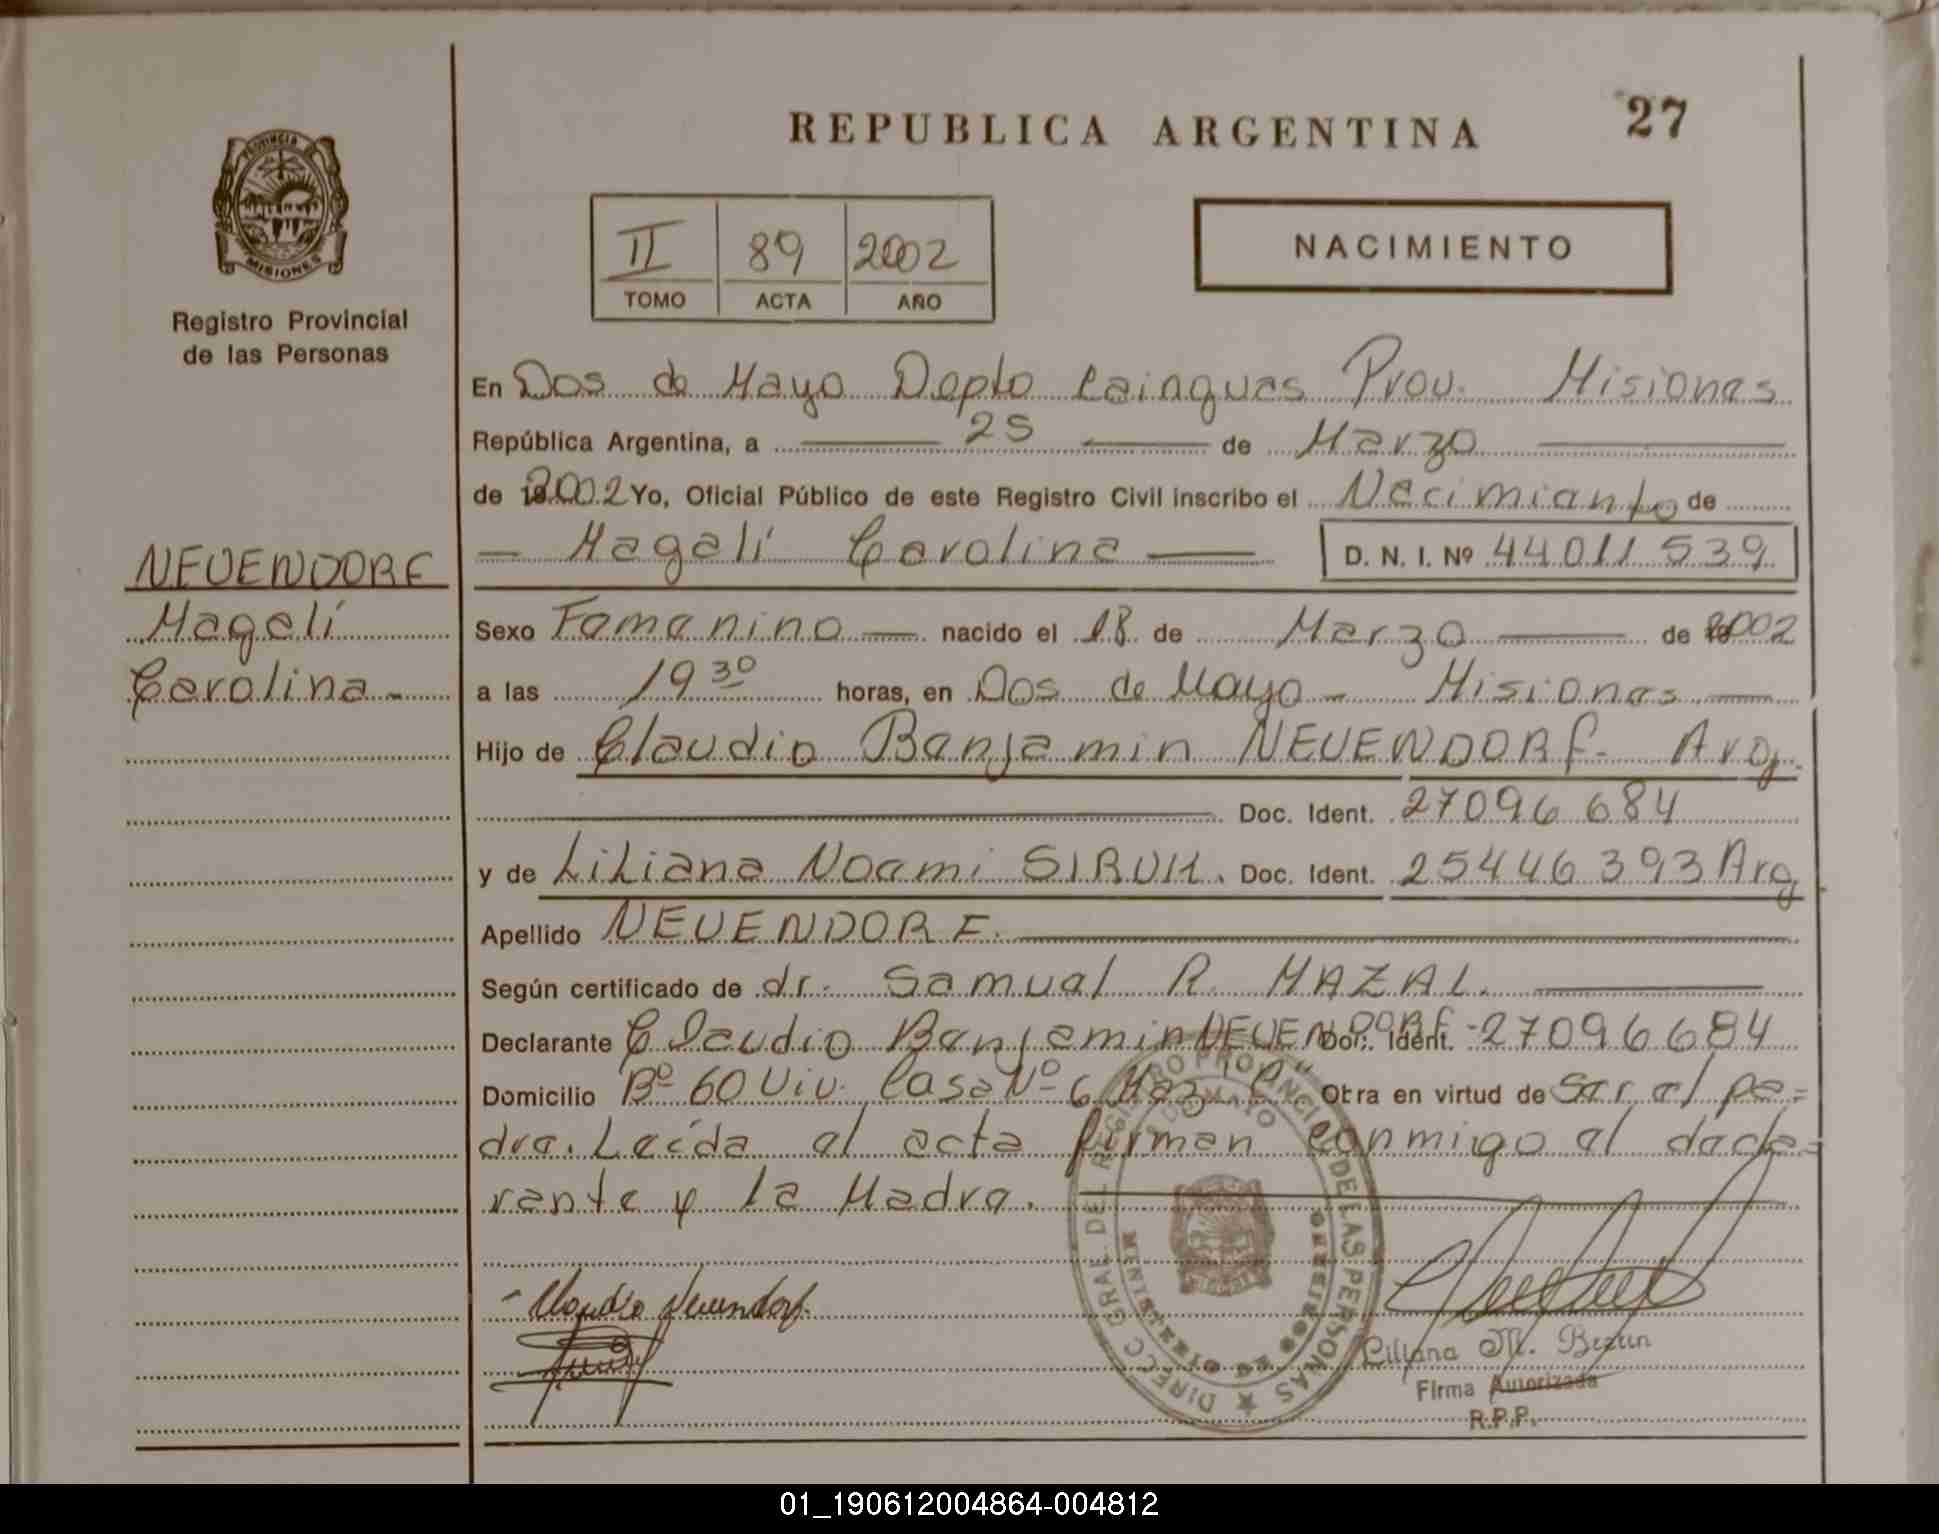 REPUBLICA ARGENTINA
27
PROVINCIA DE
MISIONES
Registro Provincial
de las Personas
II 89 2002
TOMO ACTA AÑO
NACIMIENTO
En Dos de Mayo Depto Cainguas Prov. Misiones
República Argentina, a 25 de Marzo
de 2002 Yo, Oficial Público de este Registro Civil inscribo el Nacimiento de
Magalí Carolina D. N. I. Nº 44011539
NEUENDORF
Magalí
Carolina
Sexo Femenino nacido el 18 de Marzo de 2002
a las 19 30 horas, en Dos de Mayo - Misiones
Hijo de Claudio Benjamin NEUENDORF - Arg.
Doc. Ident. 27096684
y de Liliana Noemi SIRUK. Doc. Ident. 25446393 Arg
Apellido NEUENDORF.
Según certificado de dr. Samuel R. MAZAL.
Declarante Claudio Benjamin NEUENDORF - Doc. Ident. 27096684
Domicilio Bº 60 Viv. Casa Nº 6 Maz "C" Otra en virtud de Ser el pa=
dre. Leída el acta firman conmigo el decla=
rante y la Madre.
DIREC. GRAL. DEL REGISTRO PROVINCIAL DE LAS PERSONAS
2 DE MAYO
MINISTERIO DE GOBIERNO
Claudio Neuendorf
Liliana M. Bezun
Firma Autorizada
R.P.P.
01_190612004864-004812